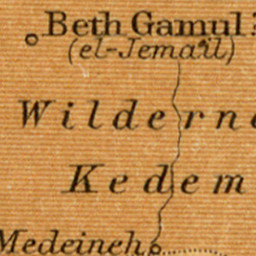 Beth Gamul?
(el-Jemail)
Wilderne
Kedem
Medeineh